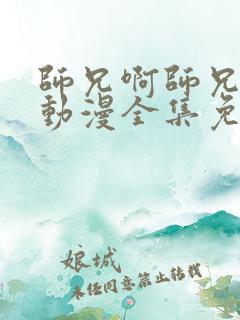 師兄啊師兄
動漫全集免
娘城
未任同意禁止轉載